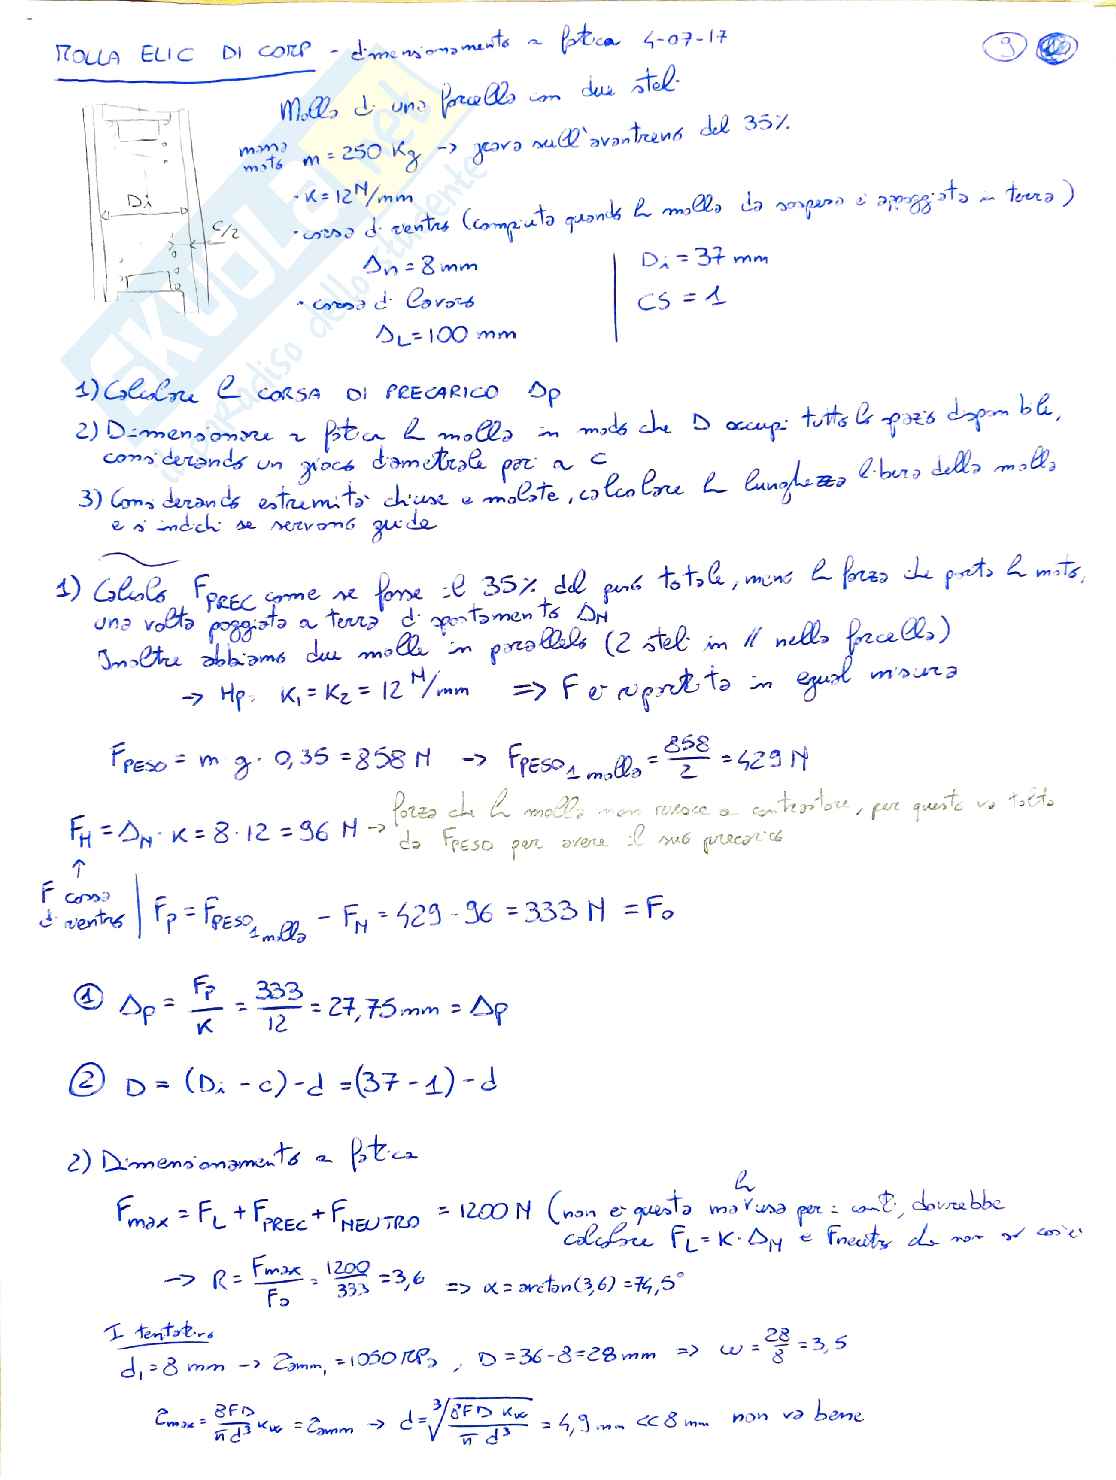 MOLLA ELIC DI COMP - dimensionamento a fatica 4-07-17
9
Molla di una forcella con due steli
massa moto m = 250 Kg → grava sull'avantreno del 35%
· K = 12 N/mm
· corsa di rientro (compiuta quando la moto da sospesa è appoggiata in terra)
Δn = 8 mm
Di = 37 mm
· corsa di lavoro
CS = 1
ΔL = 100 mm
Di
c/2
1) Calcolare la CORSA DI PRECARICO Δp
2) Dimensionare a fatica la molla in modo che D occupi tutto lo spazio disponibile,
considerando un gioco diametrale pari a c
3) Considerando estremità chiuse e molate, calcolare la lunghezza libera della molla
e si indichi se servono guide
1) Calcolo FPREC come se fosse il 35% del peso totale, meno la forza che porta la moto,
una volta poggiata a terra di spostamento ΔN
Inoltre abbiamo due molle in parallelo (2 steli in // nella forcella)
→ Hp: K1 = K2 = 12 N/mm ⇒ F è ripartita in egual misura
FPESO = m g · 0,35 = 858 N → FPESO 1 molla = 858/2 = 429 N
FN = ΔN · K = 8 · 12 = 96 N → forza che la molla non riesce a contrastare, per questo va tolta
da FPESO per avere il suo precarico
↑
F corsa di rientro
Fp = FPESO 1 molla - FN = 429 - 96 = 333 N = F0
① Δp = Fp/K = 333/12 = 27,75 mm = Δp
② D = (Di - c) - d = (37 - 1) - d
2) Dimensionamento a fatica
Fmax = FL + FPREC + FNEUTRO = 1200 N (non è questa la misura per i conti, dovrebbe
calcolare FL = K · ΔN e Fneutro che non so cos'è
→ R = Fmax/F0 = 1200/333 = 3,6 ⇒ α = arctan(3,6) = 74,5°
I tentativo
d1 = 8 mm → τamm1 = 1050 MPa, D = 36 - 8 = 28 mm ⇒ ω = 28/8 = 3,5
τmax = 8FD/πd³ Kw = τamm → d = ³√(8FD Kw/π d³) = 4,9 mm << 8 mm non va bene